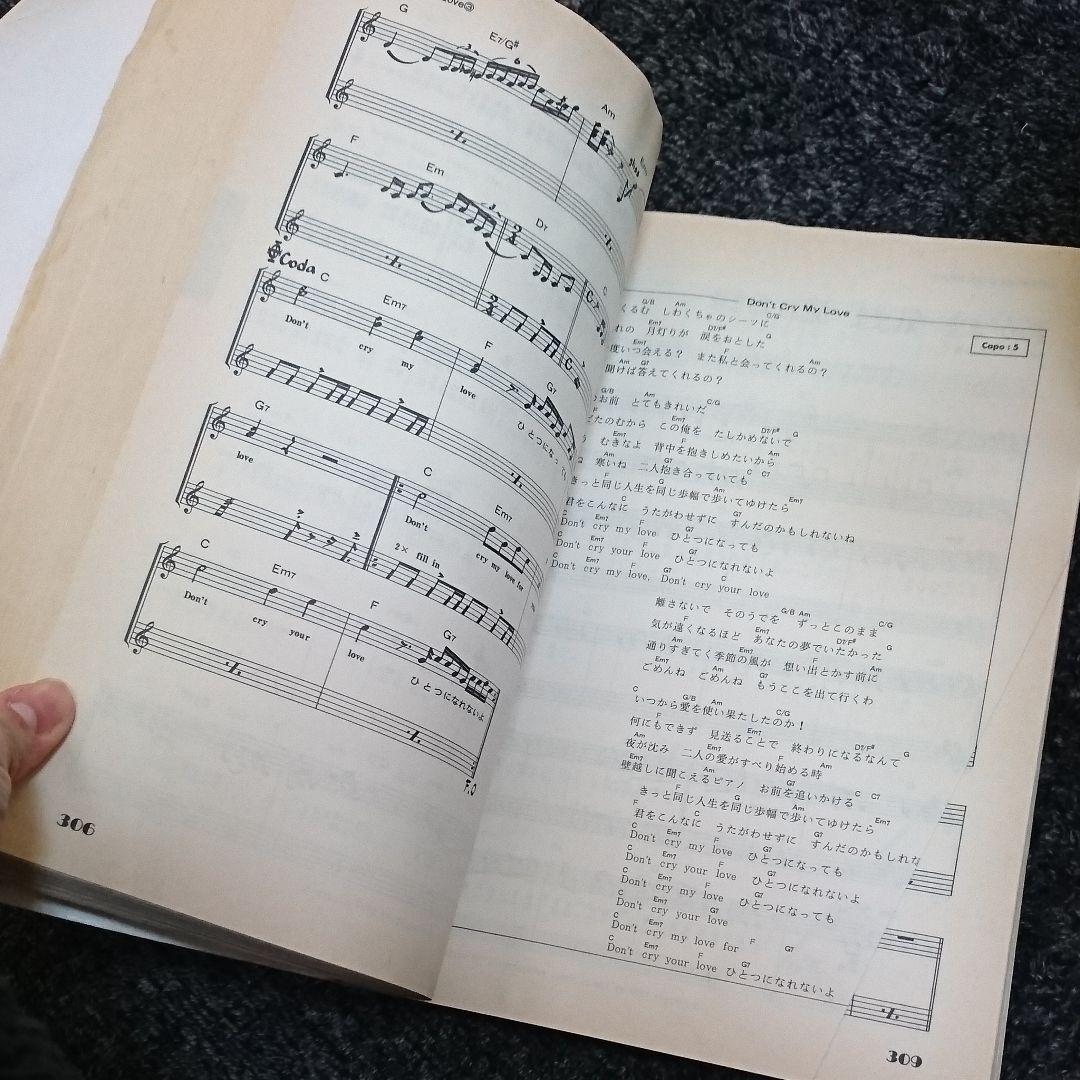 Love③
G E7/G# Am
F Em D7
Coda C Em7 F G7
Don't cry my love ひとつになって
G7 C Em7
love Don't cry my love for
2× fill in
C Em7 F G7
Don't cry your love ひとつになれないよ
F.O
306
Don't Cry My Love
Capo : 5
G/B Am C/G
くるむ しわくちゃのシーツに
Em7 D7/F# G
れの 月灯りが 涙をおとした
F Am
度いつ会える? また私と会ってくれるの?
Am G7
聞けば答えてくれるの?
G/B Am C/G
お前 とてもきれいだ
F Em7 D7/F# G
のむから この俺を たしかめないで
Em7 F Am
むきなよ 背中を抱きしめたいから
Am G7 C C7
寒いね 二人抱き合っていても
F G Am Em7
きっと同じ人生を同じ歩幅で歩いてゆけたら
C G7
君をこんなに うたがわせずに すんだのかもしれないね
C Em7 F G7
Don't cry my love ひとつになっても
C Em7 F G7
Don't cry your love ひとつになれないよ
Em7 F G7 C
Don't cry my love, Don't cry your love
G/B Am C/G
離さないで そのうでを ずっとこのまま
F Em7 D7/F# G
気が遠くなるほど あなたの夢でいたかった
Am Em7 F Am
通りすぎてく季節の風が 想い出とかす前に
Em7 Am G7
ごめんね ごめんね もうここを出て行くわ
C G/B Am C/G
いつから愛を使い果たしたのか!
F Em7 D7/F# G
何にもできず 見送ることで 終わりになるなんて
Am Em7 F Am
夜が沈み 二人の愛がすべり始める時
Em7 Am G7 C C7
壁越しに聞こえるピアノ お前を追いかける
F G Am Em7
きっと同じ人生を同じ歩幅で歩いてゆけたら
F C G7
君をこんなに うたがわせずに すんだのかもしれな
C Em7 F G7
Don't cry my love ひとつになっても
C Em7 F G7
Don't cry your love ひとつになれないよ
C Em7 F G7
Don't cry my love ひとつになっても
C Em7 G7
Don't cry your love
C Em7 F G7
Don't cry my love for
C Em7 F G7
Don't cry your love ひとつになれないよ
309